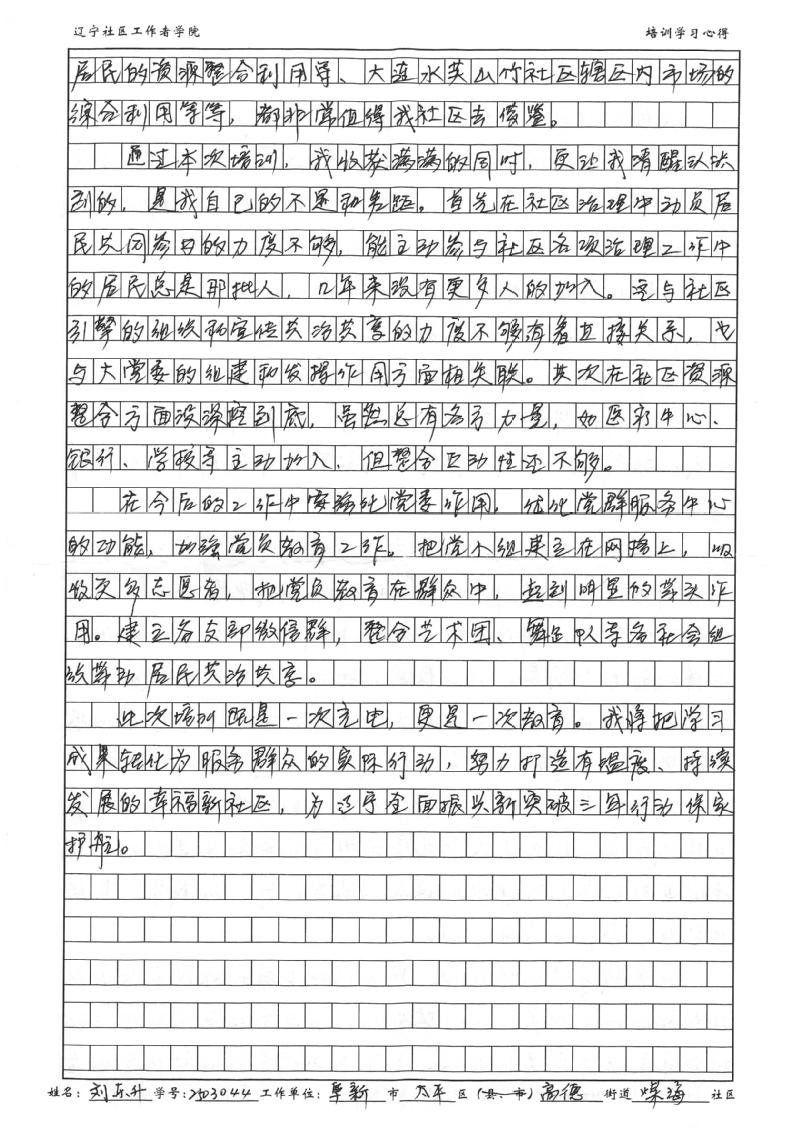 辽宁社区工作者学院 培训学习心得
居民的资源整合利用等、大连水英山竹社区辖区内市场的
综合利用等等，都非常值得我社区去借鉴。
通过本次培训，我收获满满的同时，更让我清醒认识
到的，是我自己的不足和差距。首先在社区治理中动员居
民共同参与的力度不够，能主动参与社区各项治理工作中
的居民总是那批人，几年来没有更多人的加入。这与社区
引擎的组织和宣传共治共享的力度不够有着直接关系，也
与大党委的组建和发挥作用方面相关联。其次在社区资源
整合方面没深挖到底，虽然总有各方力量，如医疗中心、
银行、学校等主动加入，但整合互动性还不够。
在今后的工作中要强化党委作用，优化党群服务中心
的功能，加强党员教育工作。把党小组建立在网格上，吸
收更多志愿者，把党员教育在群众中，起到明显的带头作
用。建立各支部微信群，整合艺术团、舞蹈队等各社会组
织带动居民共治共享。
此次培训既是一次充电，更是一次教育。我将把学习
成果转化为服务群众的实际行动，努力打造有温度、持续
发展的幸福新社区，为辽宁全面振兴新突破三年行动保驾
护航。
姓名：刘东升 学号：2503044 工作单位：阜新 市 太平 区（县、市）高德 街道 煤海 社区